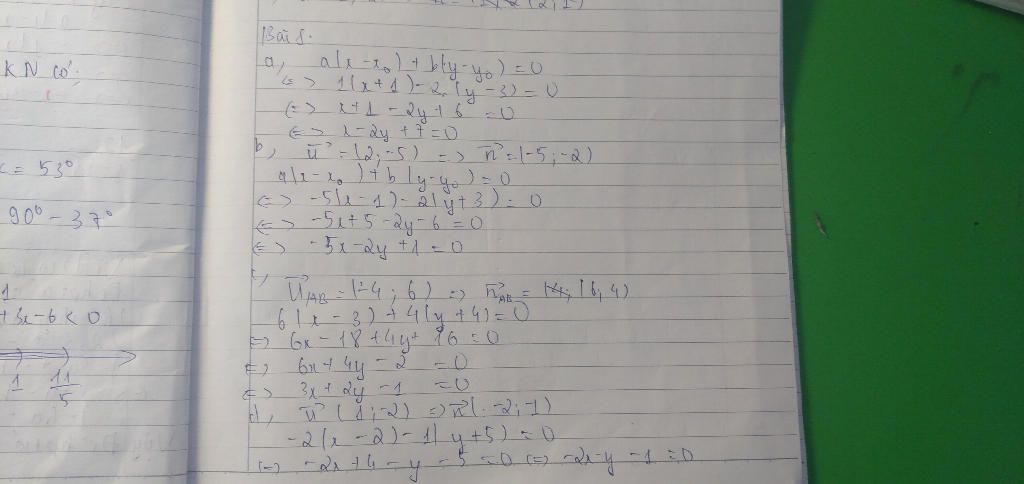 KN có:
= 53°
90° - 37°
1
+ 3x - 6 < 0
1 11/5
Bài 8.
a, a(x - x₀) + b(y - y₀) = 0
<=> 1(x + 1) - 2.(y - 3) = 0
<=> x + 1 - 2y + 6 = 0
<=> x - 2y + 7 = 0
b, u⃗ = (2; -5) => n⃗ = (-5; -2)
a(x - x₀) + b(y - y₀) = 0
<=> -5(x - 1) - 2(y + 3) = 0
<=> -5x + 5 - 2y - 6 = 0
<=> -5x - 2y + 1 = 0
c, u⃗AB = (-4; 6) => n⃗AB = (6, 4)
6(x - 3) + 4(y + 4) = 0
<=> 6x - 18 + 4y + 16 = 0
<=> 6x + 4y - 2 = 0
<=> 3x + 2y - 1 = 0
d, u⃗ (1; -2) => n⃗ (-2; -1)
-2(x - 2) - 1(y + 5) = 0
<=> -2x + 4 - y - 5 = 0 <=> -2x - y - 1 = 0